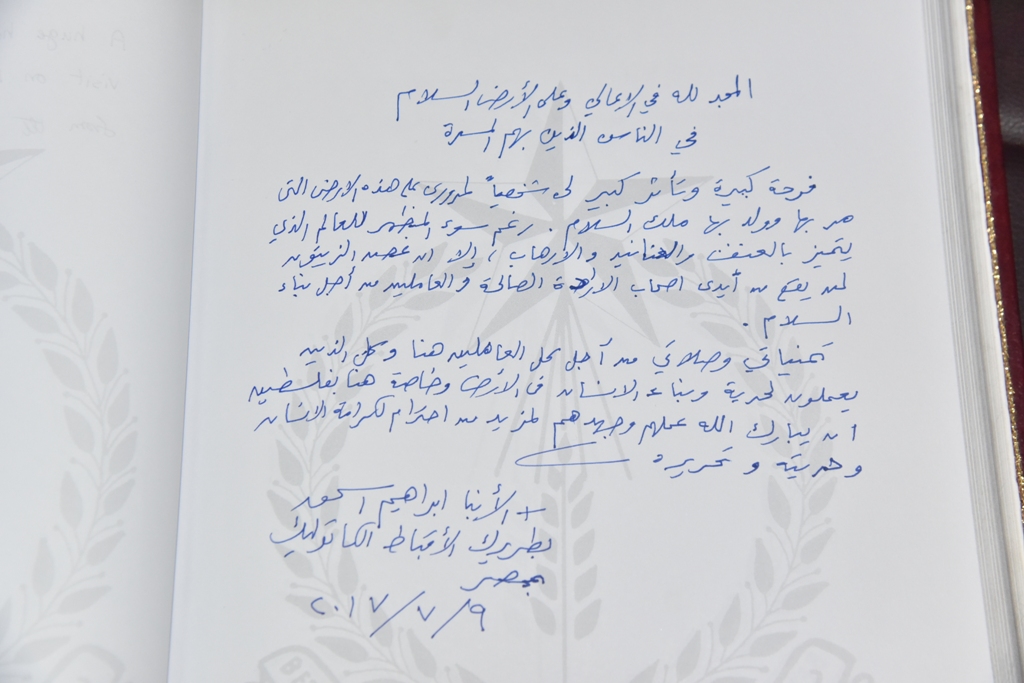 المجد لله في الاعالي وعلى الأرض السلام
في الناس الذين بهم المسرة
فرحة كبيرة وتأثر كبير لى شخصياً لمرورى على هذه الارض التى
مر بها وولد بها ملك السلام. رغم سوء المظهر للعالم الذي
يتميز بالعنف والارهاب، إلا ان غصن الزيتون
لمن يقع من أيدى اصحاب الارادة الصالحة والعاملين من أجل بناء
السلام.
تمنياتي وصلاتي من أجل كل العاملين هنا وكل الذين
يعملون لحرية وبناء الانسان فى الأرض وخاصة هنا بفلسطين
ان يبارك الله عملهم وجهدهم لمزيد من احترام لكرامة الانسان
وحريته وتحريره
+ الأنبا ابراهيم اسحق
بطريرك الأقباط الكاثوليك
بمصر
٢٠١٧/٧/٩
A huge
visit on
from